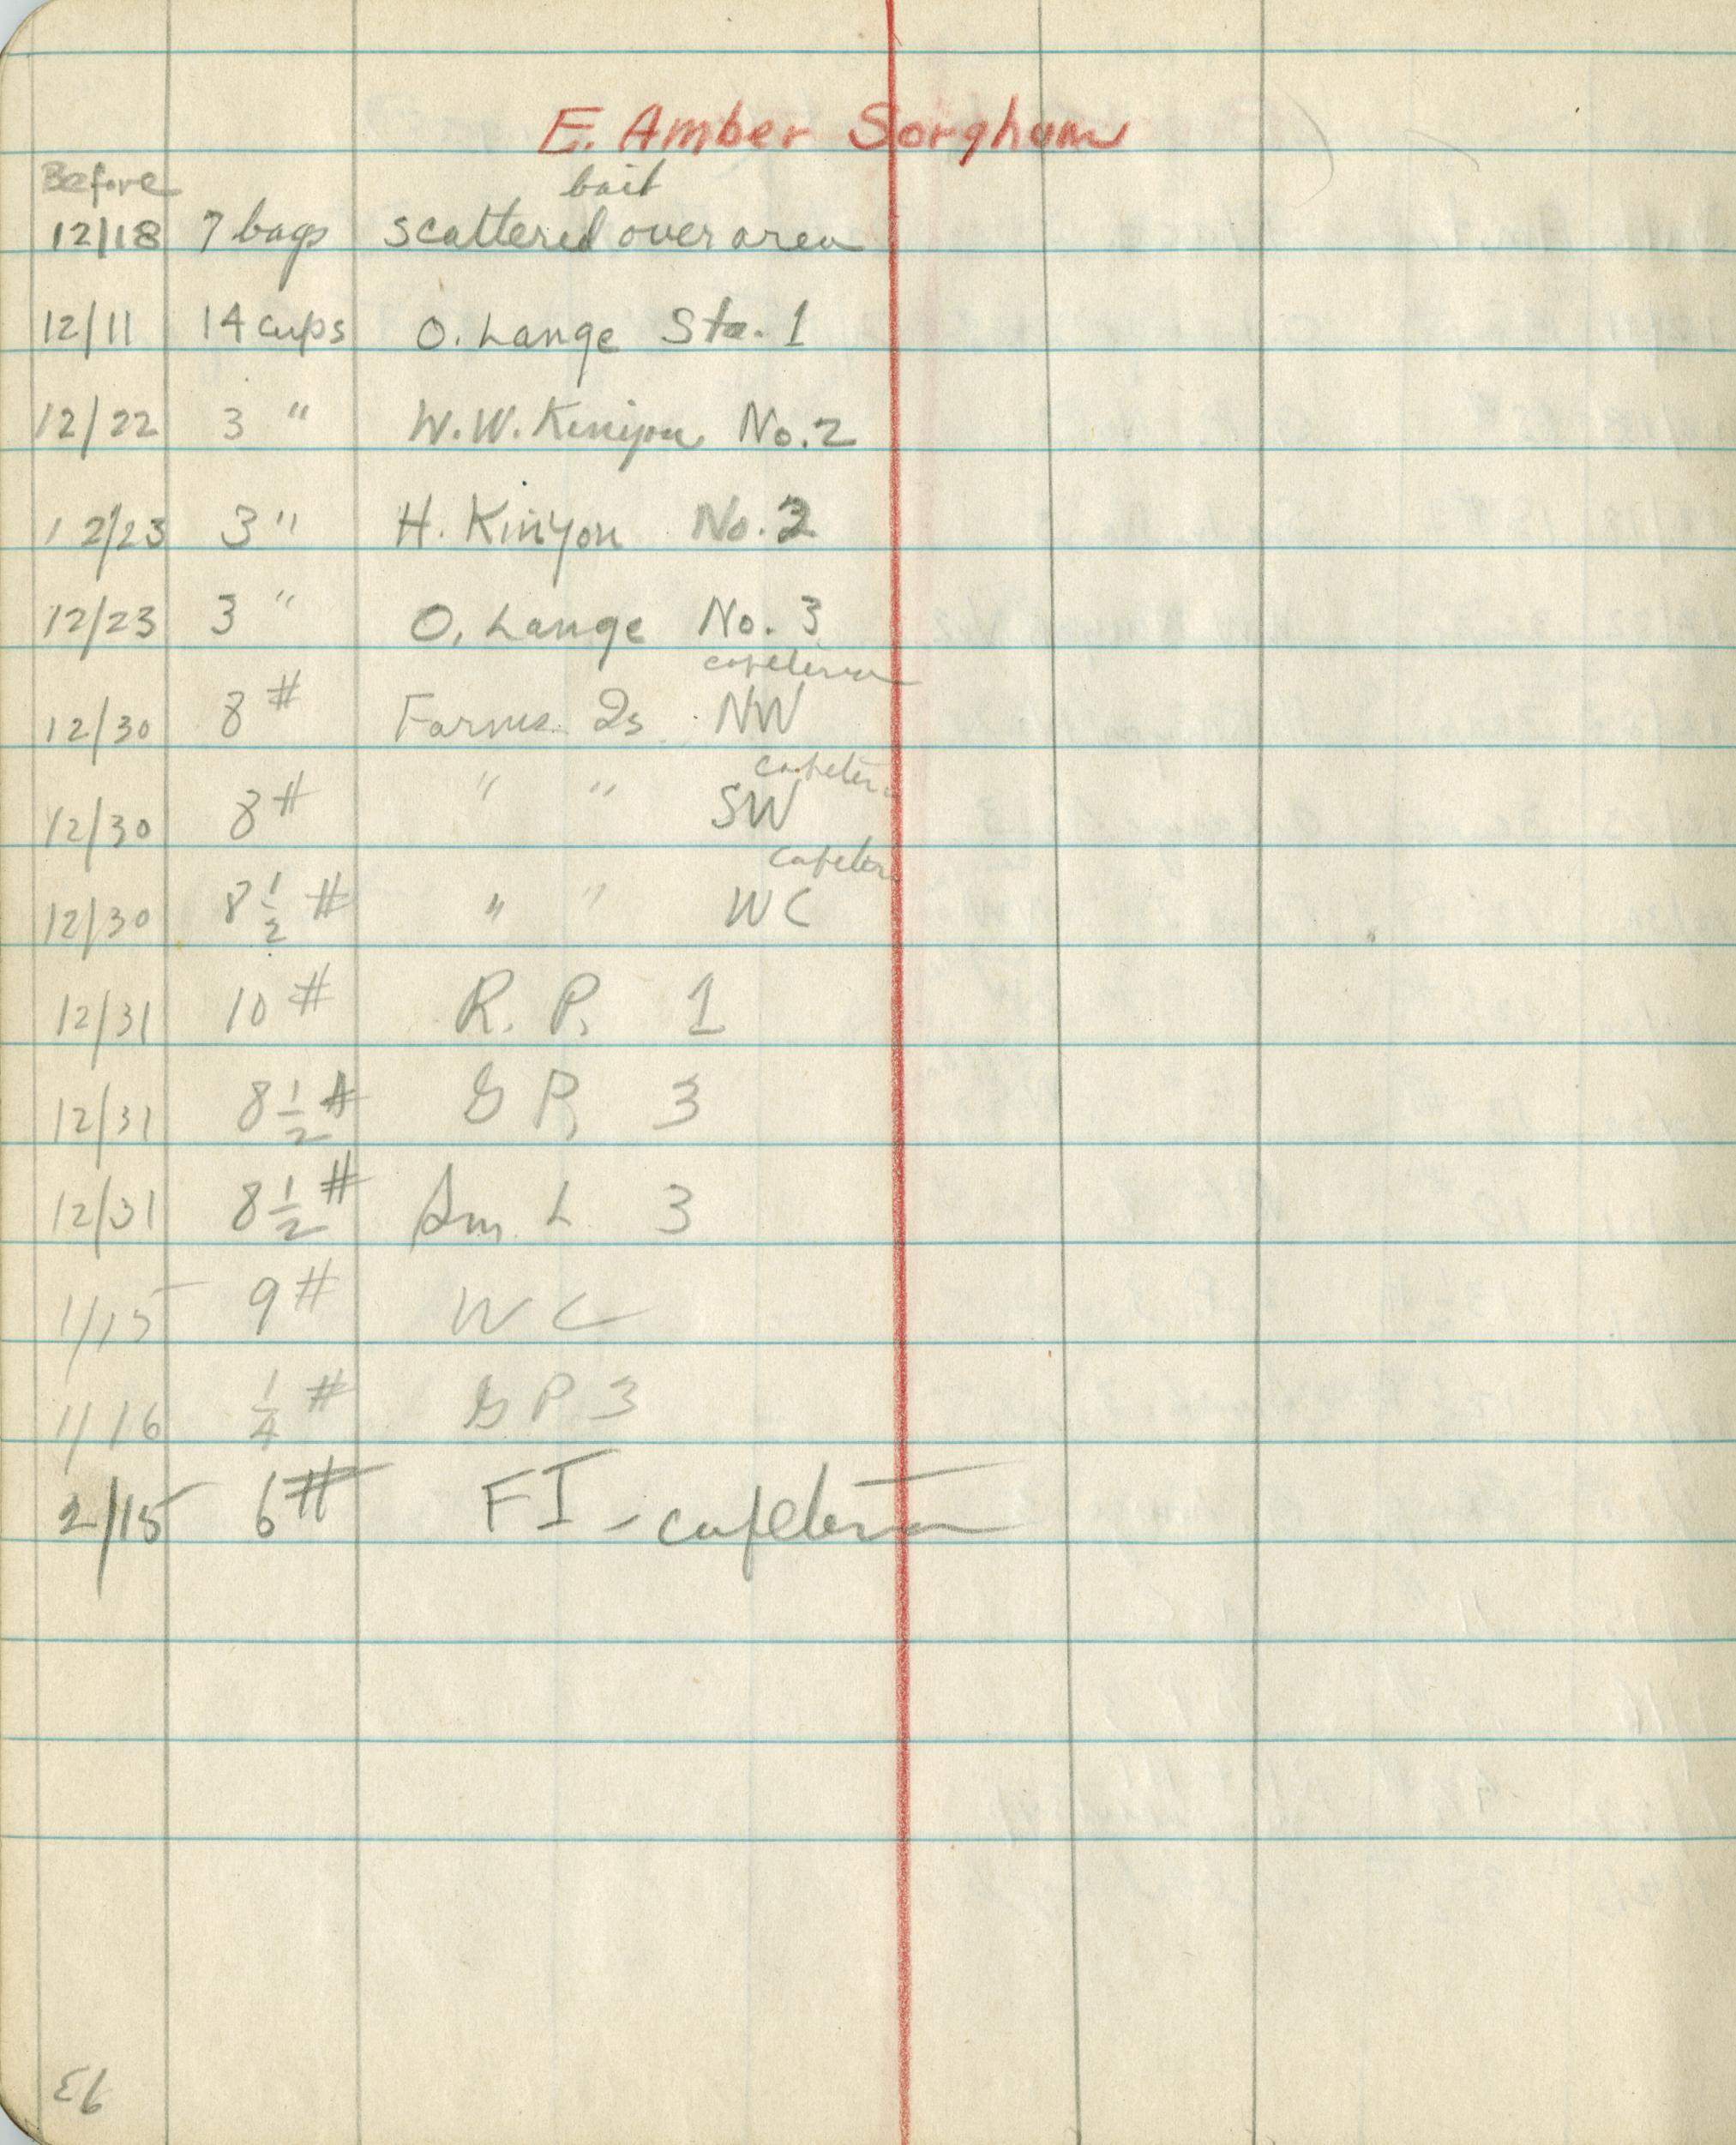 E. Amber Sorghum
Before bait
12/18 7 bags scattered over area
12/11 14 cups O. Lange Sta. 1
12/22 3 " W.W. Kinyon No. 2
12/23 3 " H. Kinyon No. 2
12/23 3 " O. Lange No. 3
cafeteria
12/30 8 # Farms 2s NW
cafeteria
12/30 8 # " " SW
cafeteria
12/30 8 1/2 # " " WC
12/31 10 # R. P. 1
12/31 8 1/2 # G P. 3
12/31 8 1/2 # Sm. L 3
1/15 9 # W C
1/16 1/4 # G P 3
2/15 6 # FI - cafeteria
93